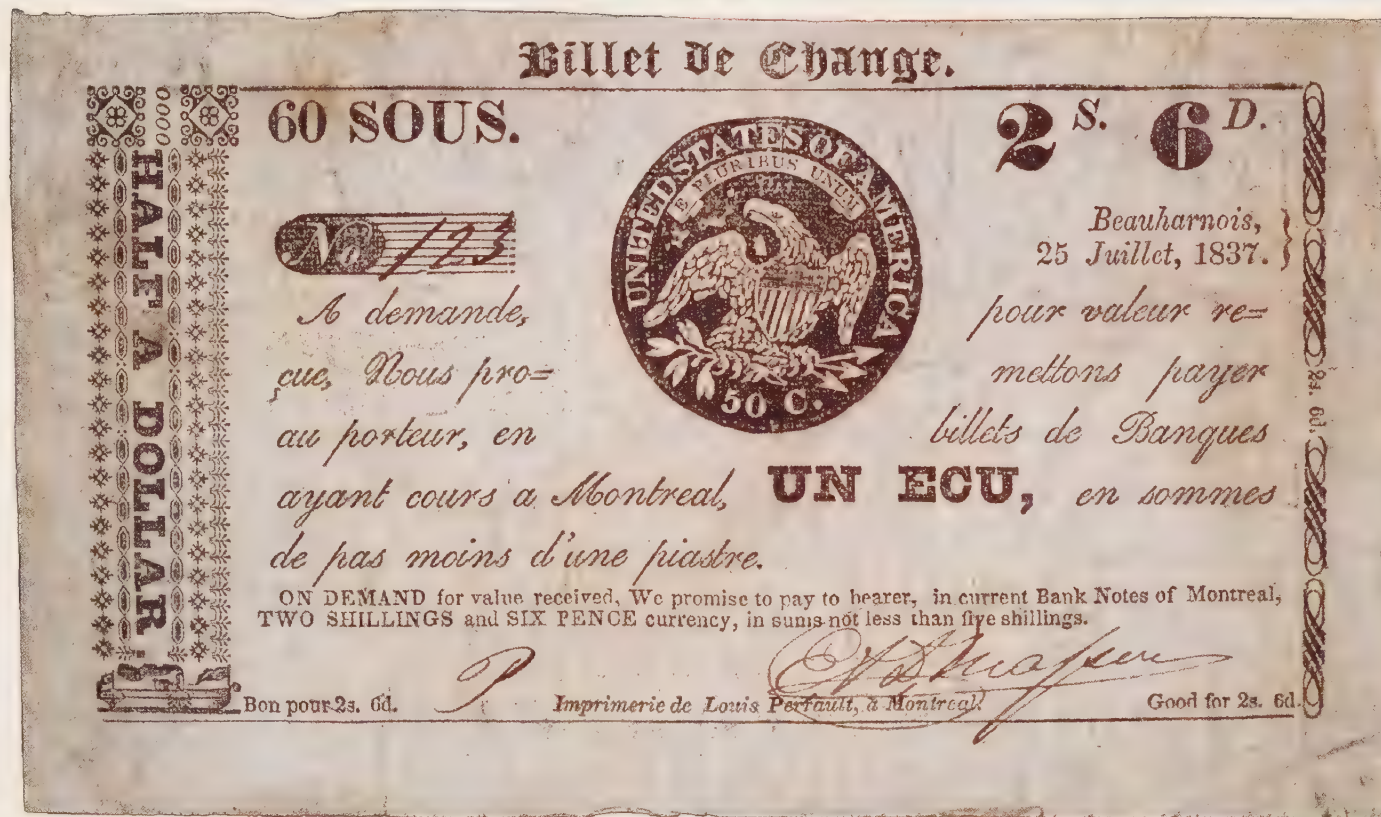 Billet de Change.
60 SOUS.
2 S. 6 D.
No. 123
Beauharnois,
25 Juillet, 1837.
UNITED STATES OF AMERICA
E PLURIBUS UNUM
50 C.
A demande, pour valeur re=
çue, Nous pro= mettons payer
au porteur, en billets de Banques
ayant cours a Montreal, UN ECU, en sommes
de pas moins d'une piastre.
ON DEMAND for value received, We promise to pay to bearer, in current Bank Notes of Montreal,
TWO SHILLINGS and SIX PENCE currency, in sums not less than five shillings.
Bon pour 2s. 6d.
Imprimerie de Louis Perrault, à Montreal.
Good for 2s. 6d.
HALF A DOLLAR.
2s. 6d.